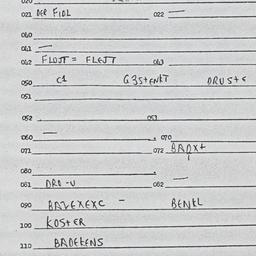 020
021 DER FIDL 022 —
040
041 —
042 FLOJT = FLEJT 043
050 C1 G3STENKT DRUSTE
051
052 053
060 — 070
071 072 BAPXT
080
081 DRO-U 082 —
090 BAVEXEXC — BENKL
100 KOSTER
110 BADEKENS